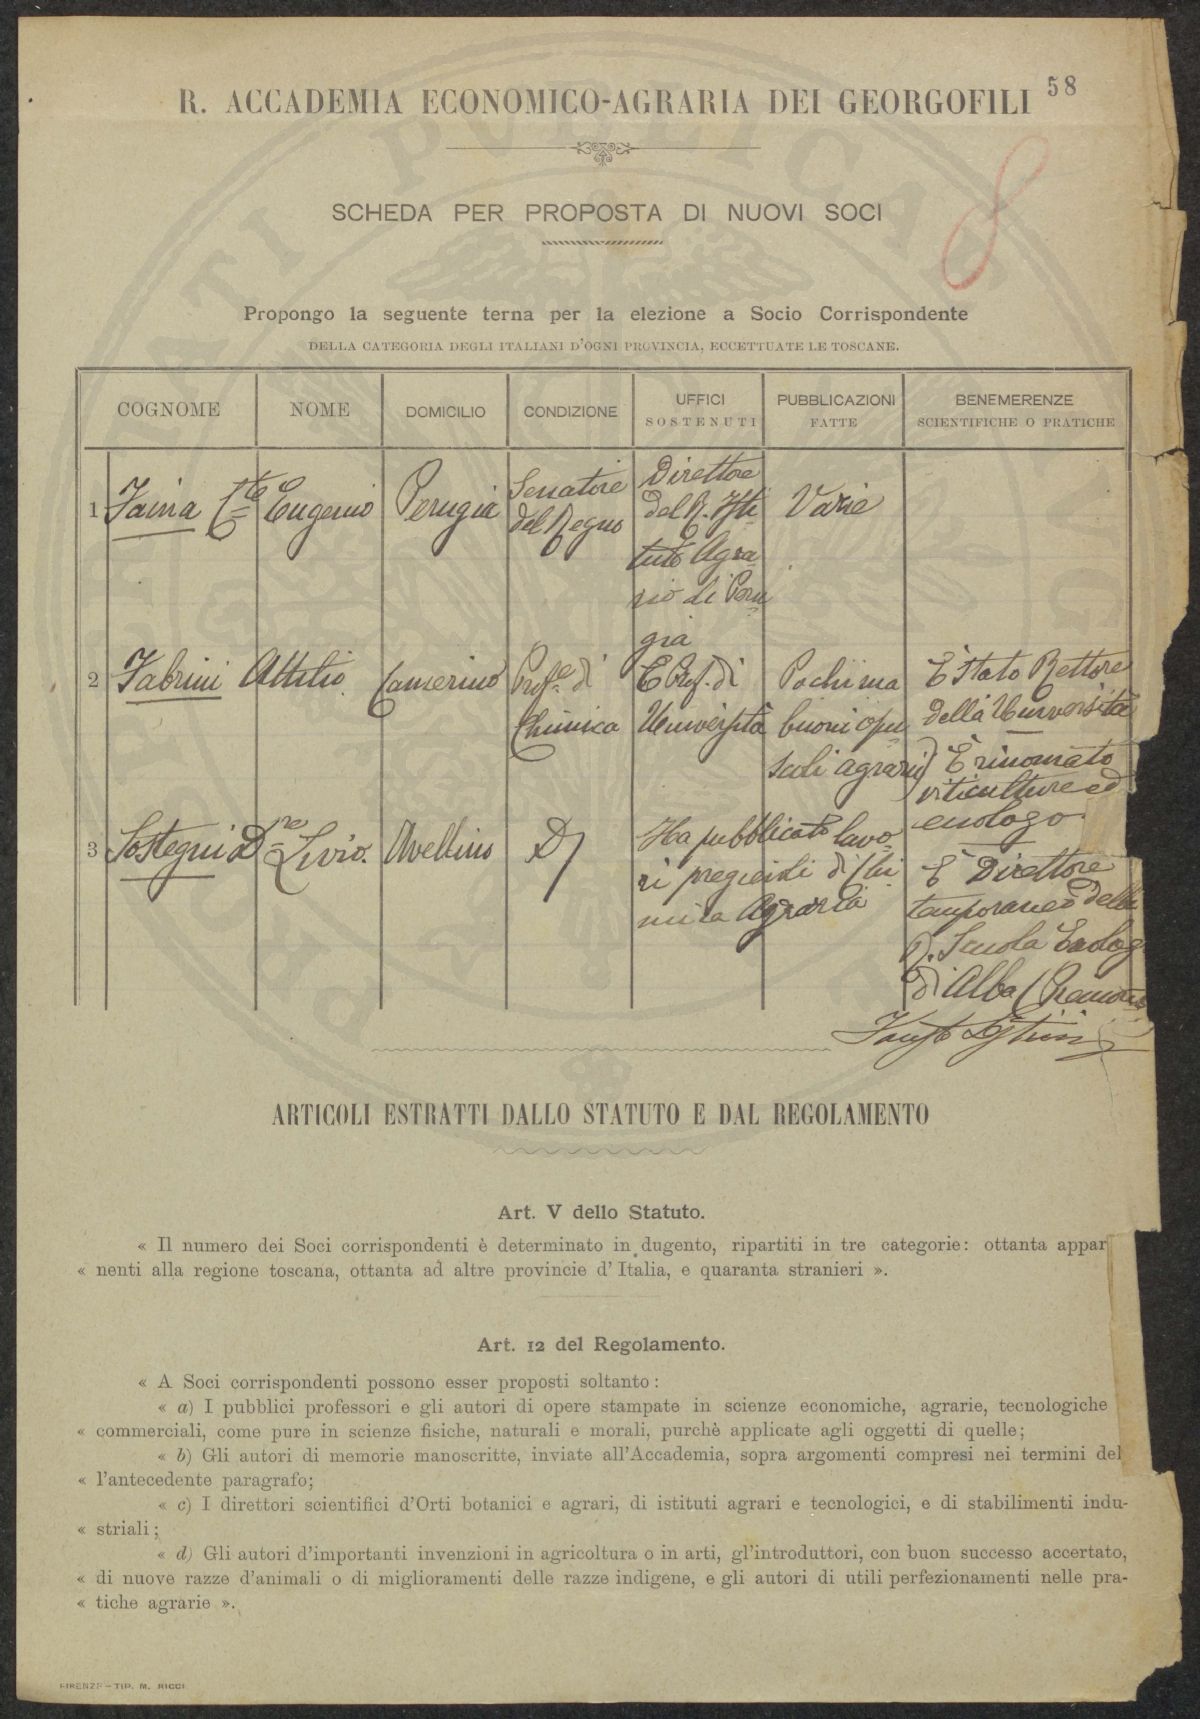 58
R. ACCADEMIA ECONOMICO-AGRARIA DEI GEORGOFILI
8
SCHEDA PER PROPOSTA DI NUOVI SOCI
Propongo la seguente terna per la elezione a Socio Corrispondente
DELLA CATEGORIA DEGLI ITALIANI D'OGNI PROVINCIA, ECCETTUATE LE TOSCANE.
COGNOME NOME DOMICILIO CONDIZIONE UFFICI SOSTENUTI PUBBLICAZIONI FATTE BENEMERENZE SCIENTIFICHE O PRATICHE
1 Faina Cte Eugenio Perugia Senatore del Regno Direttore del R. Isti
tuto Agra
rio di Peru
gia
Varie
2 Fabrini Attilio Camerino Profe. di
Chimica
E Prof. di
Università
Pochi ma
buoni opu
scoli agrarii
È stato Rettore
della Università
È rinomato
viticultore ed
enologo.
3 Sostegni Dre Livio. Avellino D
Ha pubblicato lavo
ri pregevoli di Chi
mica Agraria
È Direttore
temporaneo della
R. Scuola Enolog
di Alba (Piemonte
ARTICOLI ESTRATTI DALLO STATUTO E DAL REGOLAMENTO
Art. V dello Statuto.
« Il numero dei Soci corrispondenti è determinato in dugento, ripartiti in tre categorie: ottanta appar
« nenti alla regione toscana, ottanta ad altre provincie d'Italia, e quaranta stranieri ».
Art. 12 del Regolamento.
« A Soci corrispondenti possono esser proposti soltanto:
« a) I pubblici professori e gli autori di opere stampate in scienze economiche, agrarie, tecnologiche
« commerciali, come pure in scienze fisiche, naturali e morali, purchè applicate agli oggetti di quelle;
« b) Gli autori di memorie manoscritte, inviate all'Accademia, sopra argomenti compresi nei termini del
« l'antecedente paragrafo;
« c) I direttori scientifici d'Orti botanici e agrari, di istituti agrari e tecnologici, e di stabilimenti indu-
« striali;
« d) Gli autori d'importanti invenzioni in agricoltura o in arti, gl'introduttori, con buon successo accertato,
« di nuove razze d'animali o di miglioramenti delle razze indigene, e gli autori di utili perfezionamenti nelle pra-
« tiche agrarie ».
FIRENZE - TIP. M. RICCI